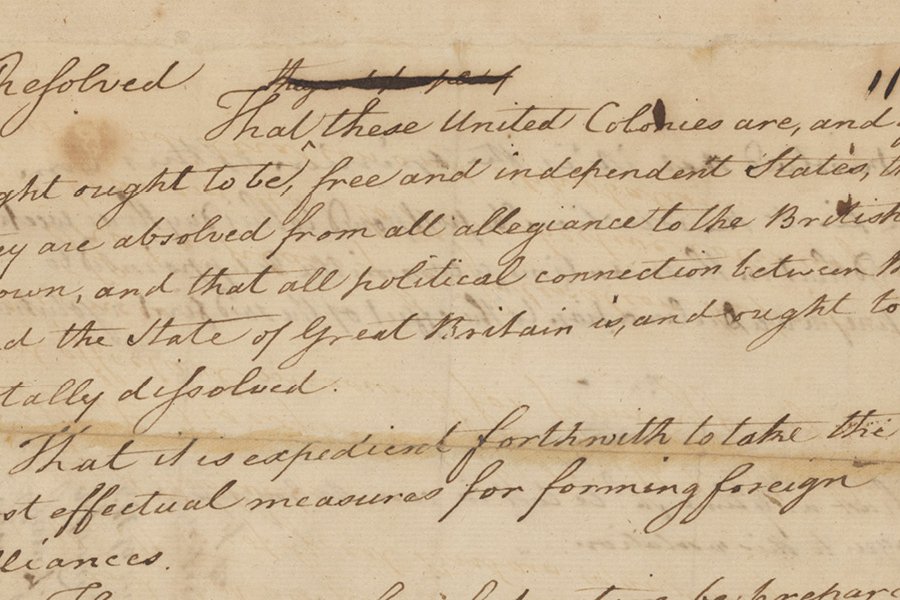 Resolved
That these United Colonies are, and
ght ought to be, free and independent States,
ey are absolved from all allegiance to the British
own, and that all political connection between
d the State of Great Britain is, and ought to
tally dissolved.
That it is expedient forthwith to take the
st effectual measures for forming foreign
lliances.
be prepare